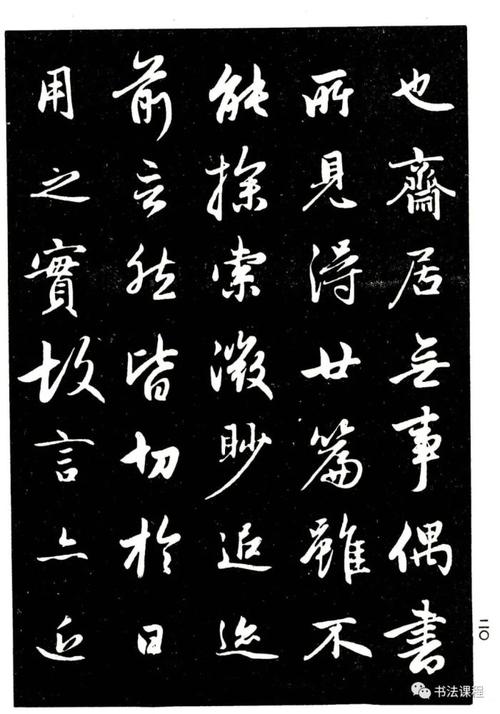 也齋居无事偶書
所見得廿篇雖不
能探索微眇追迹
前言然皆切於日
用之實故言亦近
二〇
书法课程